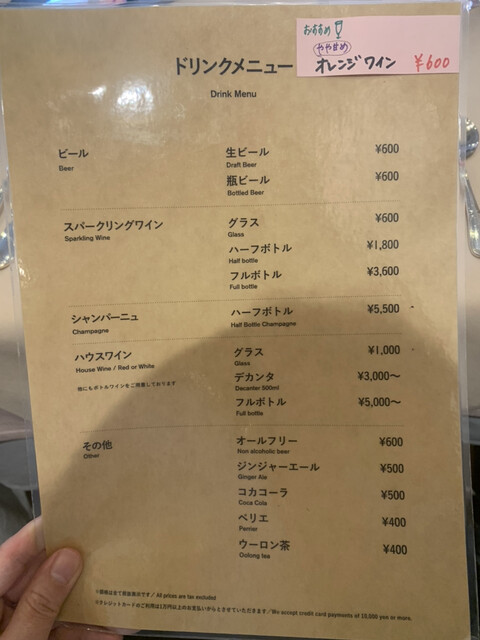 おすすめ
やや甘め
オレンジワイン ¥600
ドリンクメニュー
Drink Menu
ビール 生ビール ¥600
Beer Draft Beer
瓶ビール ¥600
Bottled Beer
スパークリングワイン グラス ¥600
Sparkling Wine Glass
ハーフボトル ¥1,800
Half bottle
フルボトル ¥3,600
Full bottle
シャンパーニュ ハーフボトル ¥5,500
Champagne Half Bottle Champagne
ハウスワイン グラス ¥1,000
House Wine / Red or White Glass
他にもボトルワインをご用意しております
デカンタ ¥3,000〜
Decanter 500ml
フルボトル ¥5,000〜
Full bottle
その他 オールフリー ¥600
Other Non alcoholic beer
ジンジャーエール ¥500
Ginger Ale
コカコーラ ¥500
Coca Cola
ペリエ ¥400
Perrier
ウーロン茶 ¥400
Oolong tea
※価格は全て税抜表示です/ All prices are tax excluded
※クレジットカードのご利用は1万円以上のお支払いからとさせていただきます/We accept credit card payments of 10,000 yen or more.